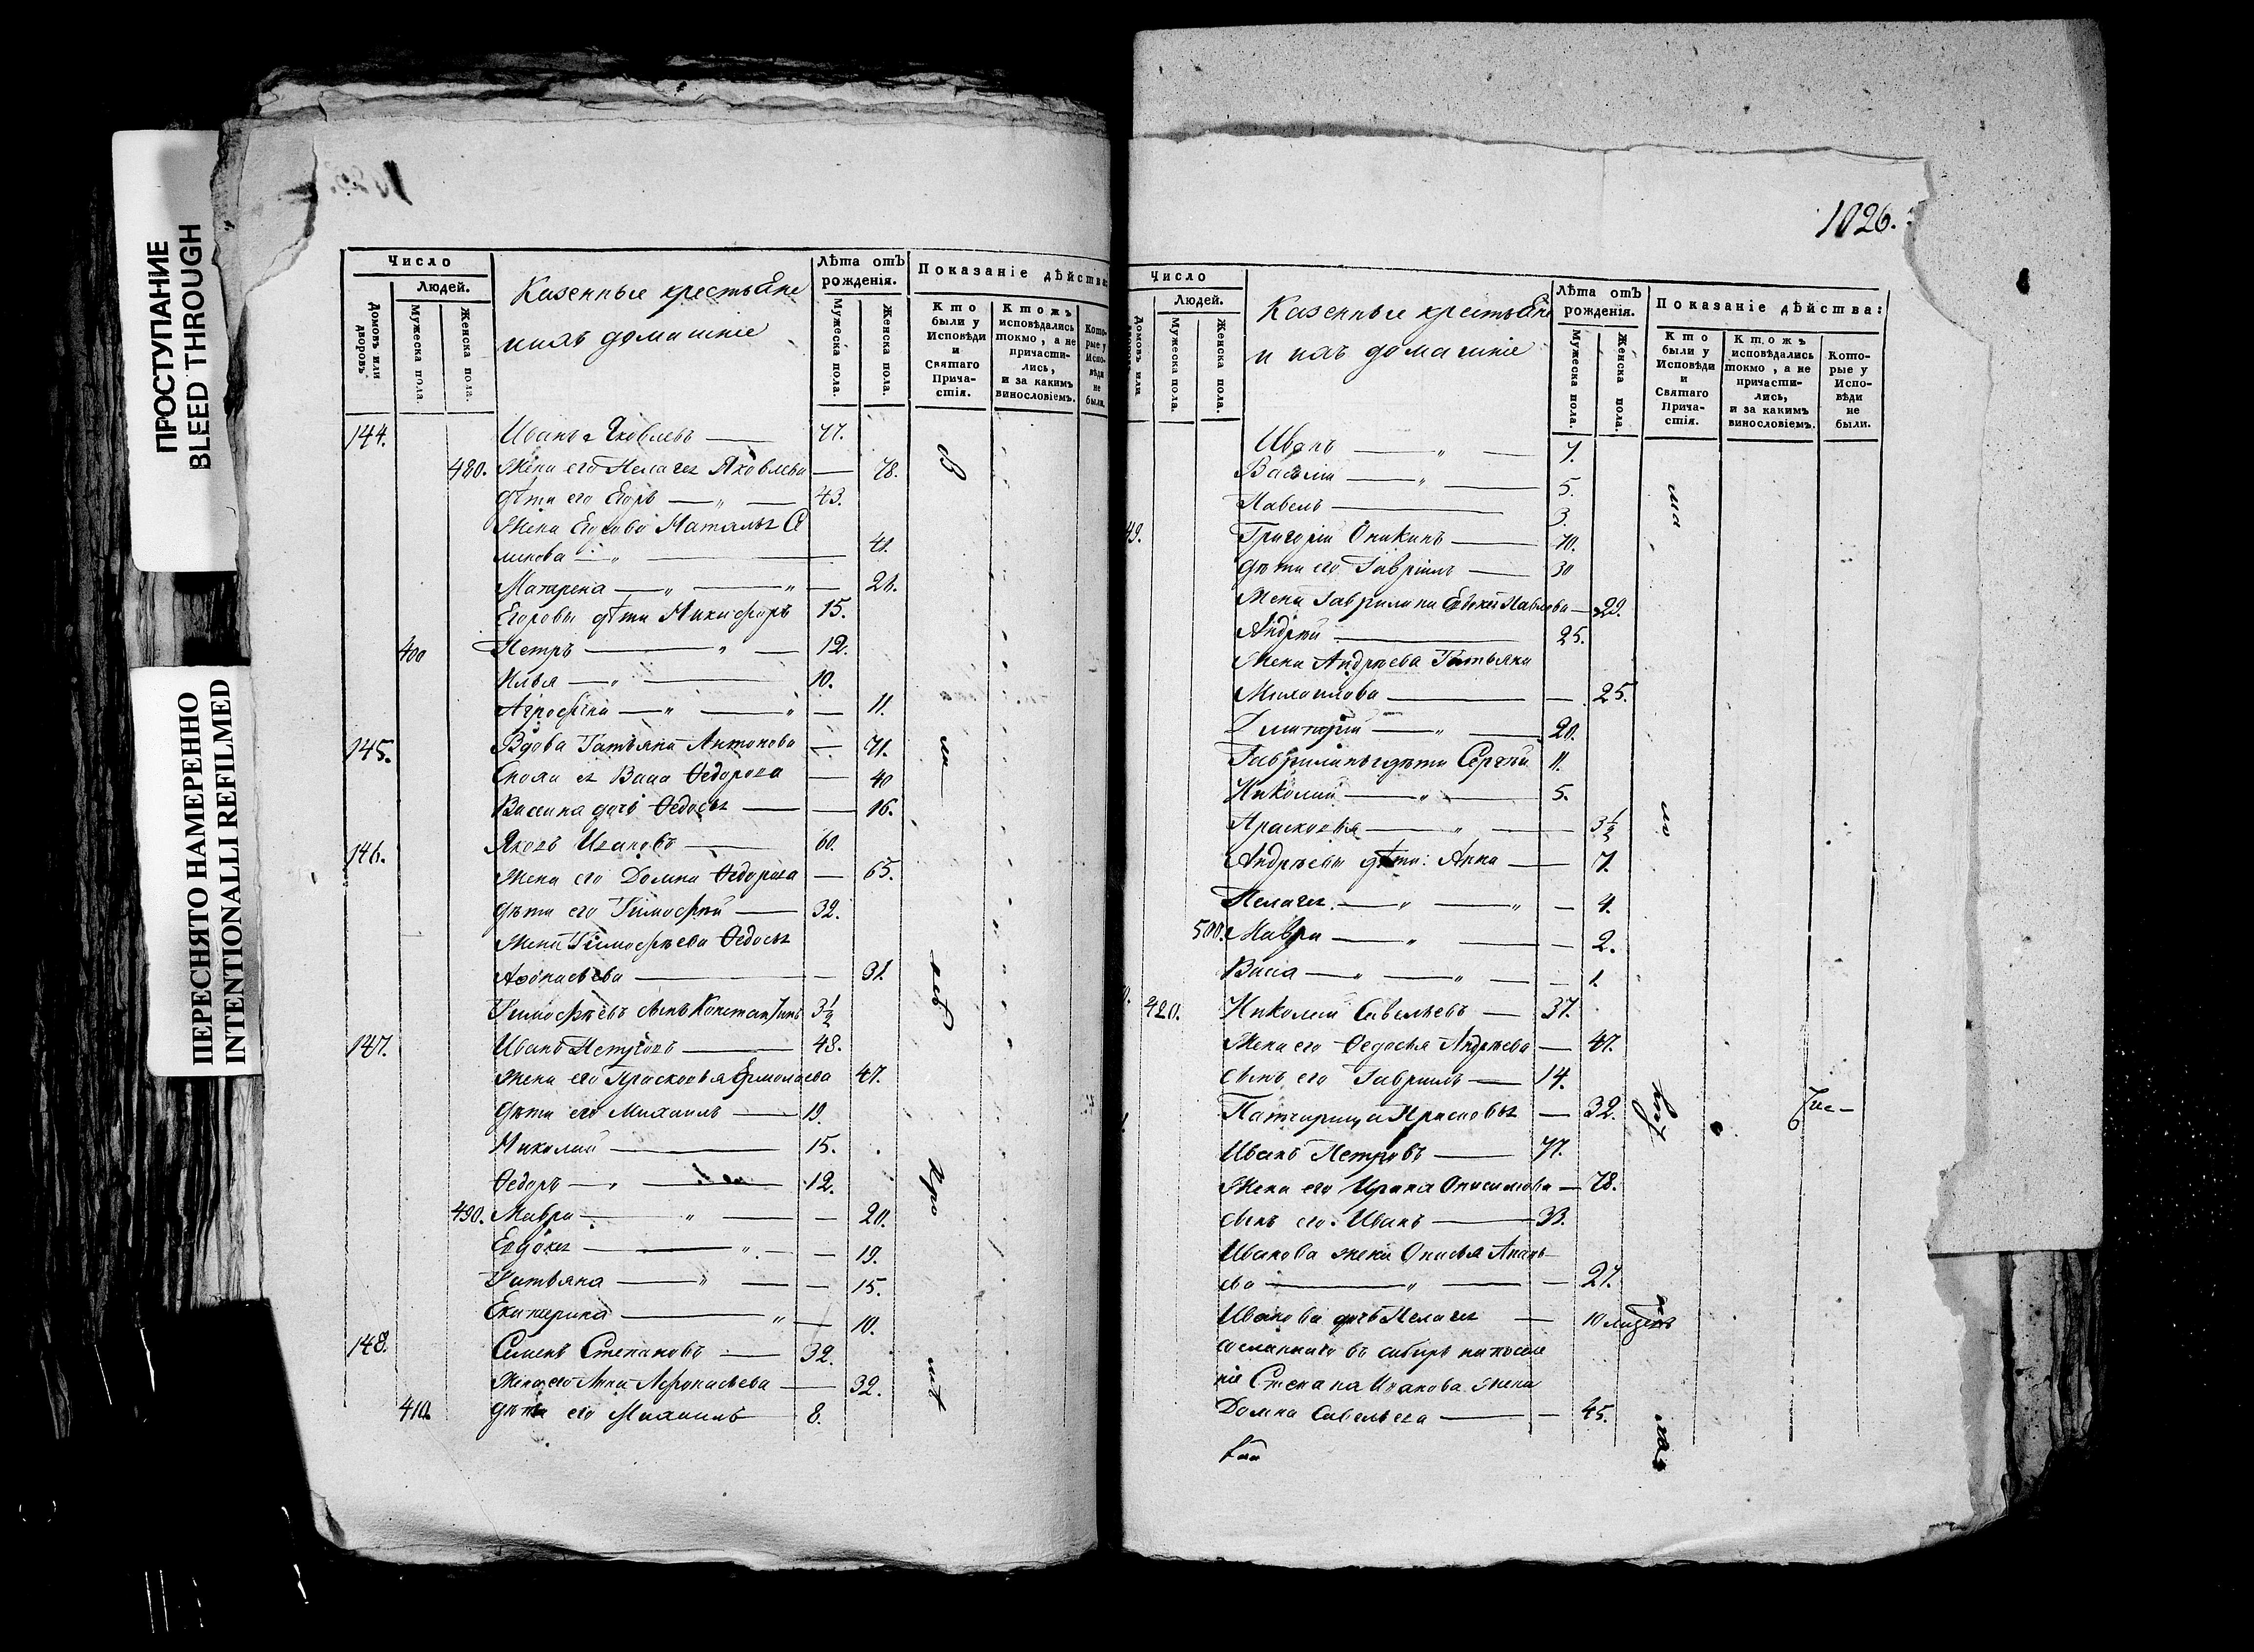 ПРОСТУПАНИЕ
BLEED THROUGH
ПЕРЕСНЯТО НАМЕРЕННО
INTENTIONALLI REFILMED
Число
Людей.
Домовъ или дворовъ
Мужеска пола.
Женска пола.
Казенные крестьяне
и ихъ домашніе
Лѣта отъ рожденія.
Мужеска пола.
Женска пола.
Показаніе дѣйства:
Кто были у Исповѣди и Святаго Причастія.
Ктожъ исповѣдались токмо, а не причастились, и за какимъ винословіемъ.
Которые у Исповѣди не были.
144. Иванъ Яковлевъ — 77.
480. Жена его Пелагея Яковлева — 78.
дѣти его Егоръ — „ — 43.
Жена Егорова Наталья
— „ — 41.
Матрена — „ — „ — 21.
Егоровы дѣти Никифоръ 15.
400 Петръ — „ — 12.
Илья — „ — 10.
Агрофена — „ — „ — 11.
145. Вдова Татьяна Антонова — 71.
Васа Ѳедорова — 40
Васина дочь Ѳедосья — 16.
146. Яковъ Ивановъ — 60.
Жена его Домна Ѳедорова — 65.
дѣти его Тимоѳей — 32.
Жена Тимоѳеева Ѳедосья
Аѳонасьева — 31.
Тимоѳеевъ сынъ Константинъ 3½
147. Иванъ Петровъ — 48.
Жена его Прасковья Ермолаева 47.
дѣти его Михаилъ — 19.
Николай — 15.
Ѳедоръ — „ — 12.
490. Мавра — „ — 20.
Евдокея — „ — 19.
Татьяна — „ — 15.
Екатерина — „ — 10.
148. Семенъ Степановъ — 32.
Жена его Анна Афонасьева — 32.
410. дѣти его Михаилъ 8.
1026.
Число
Людей.
Домовъ или
Мужеска пола.
Женска пола.
Казенные крестьяне
и ихъ домашніе
Лѣта отъ рожденія.
Мужеска пола.
Женска пола.
Показаніе дѣйства:
Кто были у Исповѣди и Святаго Причастія.
Ктожъ исповѣдались токмо, а не причастились, и за какимъ винословіемъ.
Которые у Исповѣди не были.
Иванъ — „ — 7.
Василій — „ — 5.
Павелъ — 3.
49. Григорій Оникинъ — 70.
дѣти его Гавріилъ — 30
Жена Гаврилина Евдокея Павлова — 29.
Андрей — 25.
Жена Андреева Татьяна
Михаилова — 25.
Дмитрій — „ — 20.
Гаврилины дѣти Сергей 11.
Николай — „ — 5.
Прасковья — „ — 3½
Андреевы дѣти: Анна — 7.
Пелагея — „ — „ — 4.
500. Мавра — „ — 2.
Васа — „ — „ — 1.
420. Николай Савельевъ — 37.
Жена его Ѳедосья Андреева — 47.
сынъ его Гавриилъ — 14.
Прасковья — 32.
Иванъ Петровъ — 77.
Жена его Ирина Онисимова — 78.
сынъ его Иванъ — 33.
Иванова жена Онисья Анань-
ева — „ — 27.
Иванова дочь Пелагея — 10
сосланнаго въ сибирь на поселе
ніе Степана Иванова жена
Домна Савельева — 45.